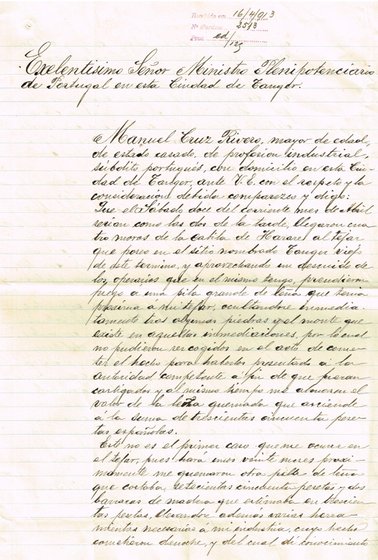 Recebido em 16/4/913
Nº d'ordem 3513
Proc. ed/125
Exelentisimo Señor Ministro Plenipotenciario
de Portugal en esta Ciudad de Tanger.
Manuel Cruz Rivero, mayor de edad,
de estado casado, de profesion industrial,
súbdito portugués, con domicilio en esta Ciu-
dad de Tanger, ante V.E. con el respeto y la
consideracion debida comparezco y digo:
Que el Sábado doce del corriente mes de Abril
serian como las dos de la tarde, llegaron cua-
tro moros de la cabila de al tejar
que poseo en el sitio nombrado Tanger viejo
de este termino, y aprovechando un descuido de
los operarios que en el mismo tengo, prendieron
fuego a una pila grande de leña que tenia
proxima a mi tejar, ocultandose inmedia-
tamente tras algunas piedras y al monte que
existe en aquellas inmediaciones, por lo cual
no pudieron ser cogidos en el acto de come-
ter el hecho para haberlos presentado á la
autoridad competente á fin de que fueran
castigados y al mismo tiempo me abonaran el
valor de la leña quemada que asciende
á la suma de trescientas cincuenta pese-
tas españolas.
Este no es el primer caso que me ocurre en
el tejar, pues hará unos veinte meses proxi-
mamente me quemaron otra pila de leña
que costaba setecientas cincuenta pesetas y dos
barracas de madera que estimaba en trescien-
tas pesetas, llevandose además varias herra-
mientas necesarias á mi industria, cuyo hecho
cometieron de noche, y del cual di conocimiento